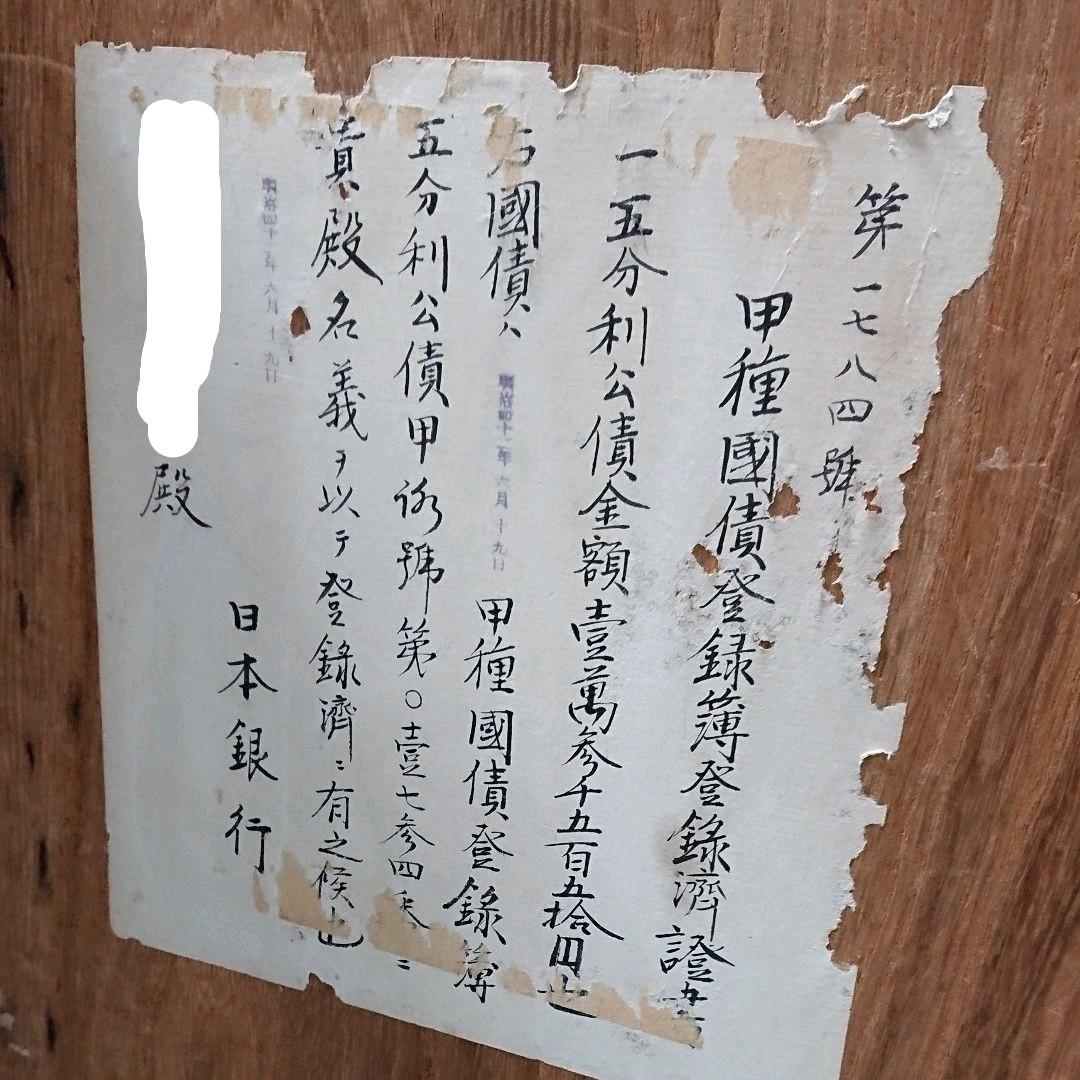 第一七八四號
甲種國債登録簿登録濟證書
一五分利公債金額壹萬参千五百五拾円也
右國債ハ明治四十二年六月十九日甲種國債登録簿
五分利公債甲 號第〇壹七参四 ニ
貴殿名義ヲ以テ登録濟ニ有之候也
明治四十二年六月十九日
日本銀行
殿